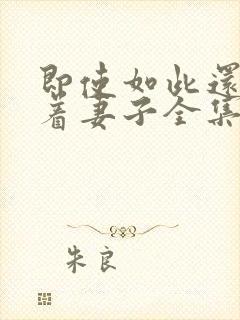 即使如此還
着妻子全集
朱良